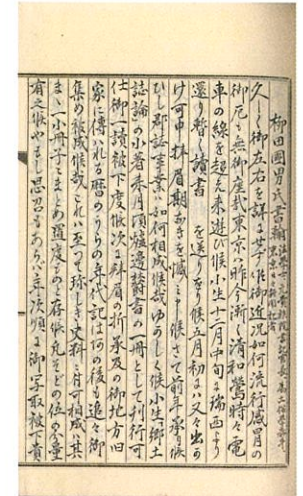 柳田國男氏書翰
久しく御左右を詳にせず候御近況如何流行感冒の
御厄も無御座哉東京ハ昨今漸く清和鶯時々電
車の線を超え来遊び候小生十一月中旬は瑞西より
還り暫く讀書を送りをり候五月初めハ又々出か
け可申拝眉期なきを憾ミ申候さて前年承り候
ひし郡誌事業ハ如何相成候哉ゆかしく候小生郷土
誌論の小著本月頃爐邊叢書の一冊として刊行可
仕御一讀被下度候次に拝眉の折承及の御地方旧
家に傳ハれる暦のうらの年代記は何の後も追々御
集め被成候哉これハ至つて珍しき史料ニ付可相成ハ其
まゝ一小冊子にまとめ置度ものと存候凡そどの位の分量
有之候やもし思召もあらハ年次順に御写取被下責